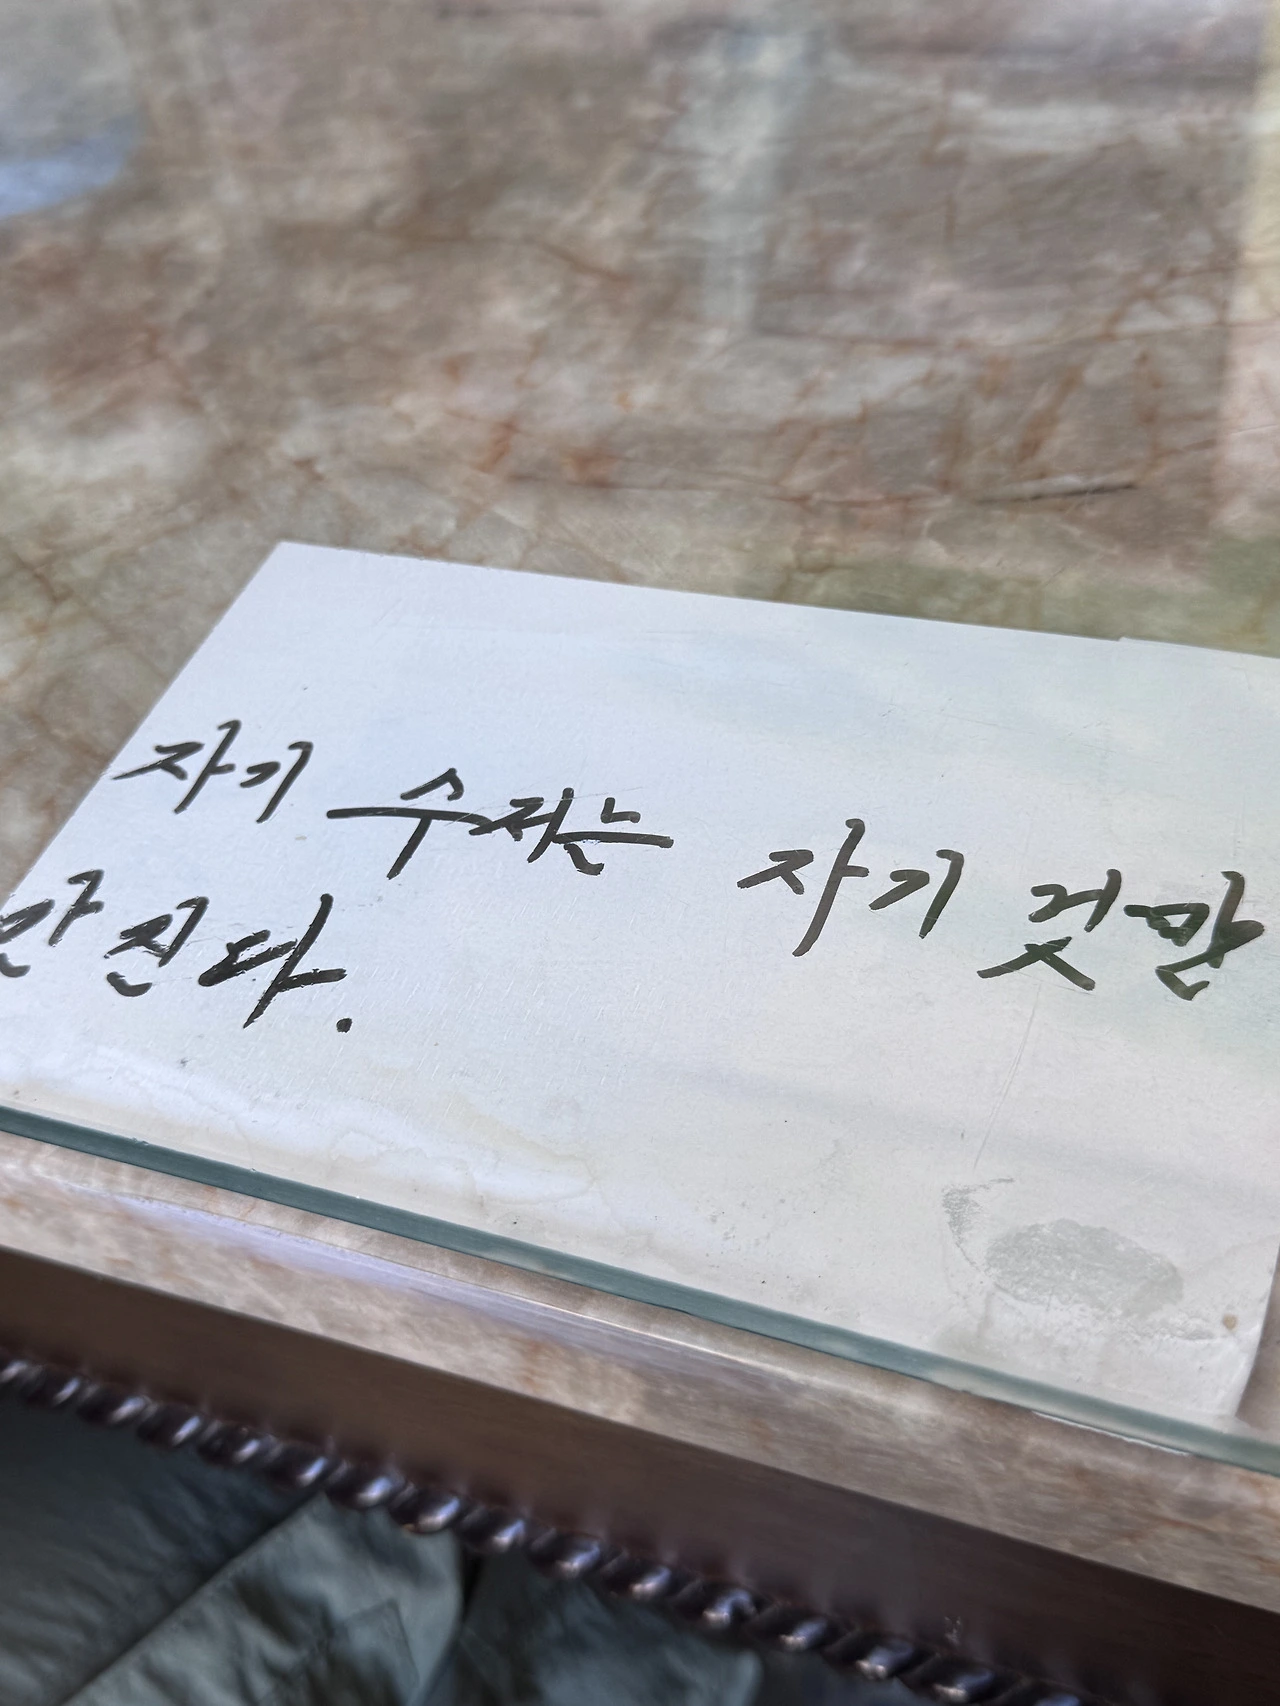 자기 수저는 자기 것만
만진다.